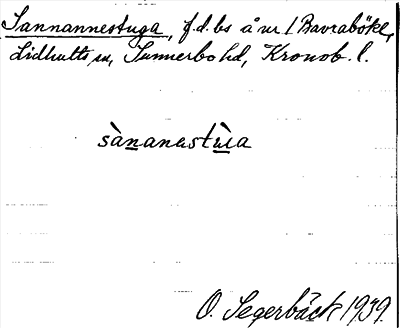 Sannannestuga, f.d. bs å nr 1 Bavraböke,
Lidhults sn, Sunnerbo hd, Kronob. l.
sànanastùɩa
O. Segerbäck 1939.